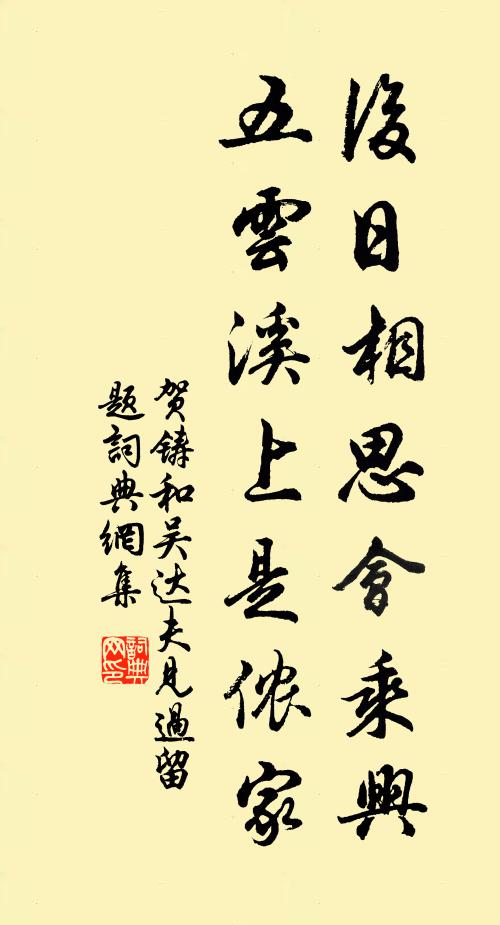 後日相思會乘興
五雲溪上是侬家
贺鑄和吴达夫見過留
题詞典網集
詞典
网印